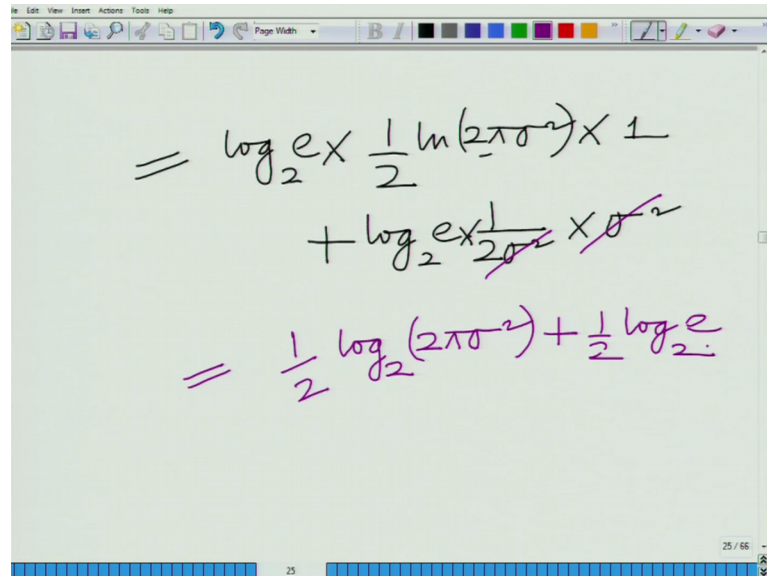 File Edit View Insert Actions Tools Help
Page Width B I
= log₂e × 1/2 ln(2πσ²) × 1
+ log₂e × 1/2σ² × σ²
= 1/2 log₂(2πσ²) + 1/2 log₂e
25 / 66
25